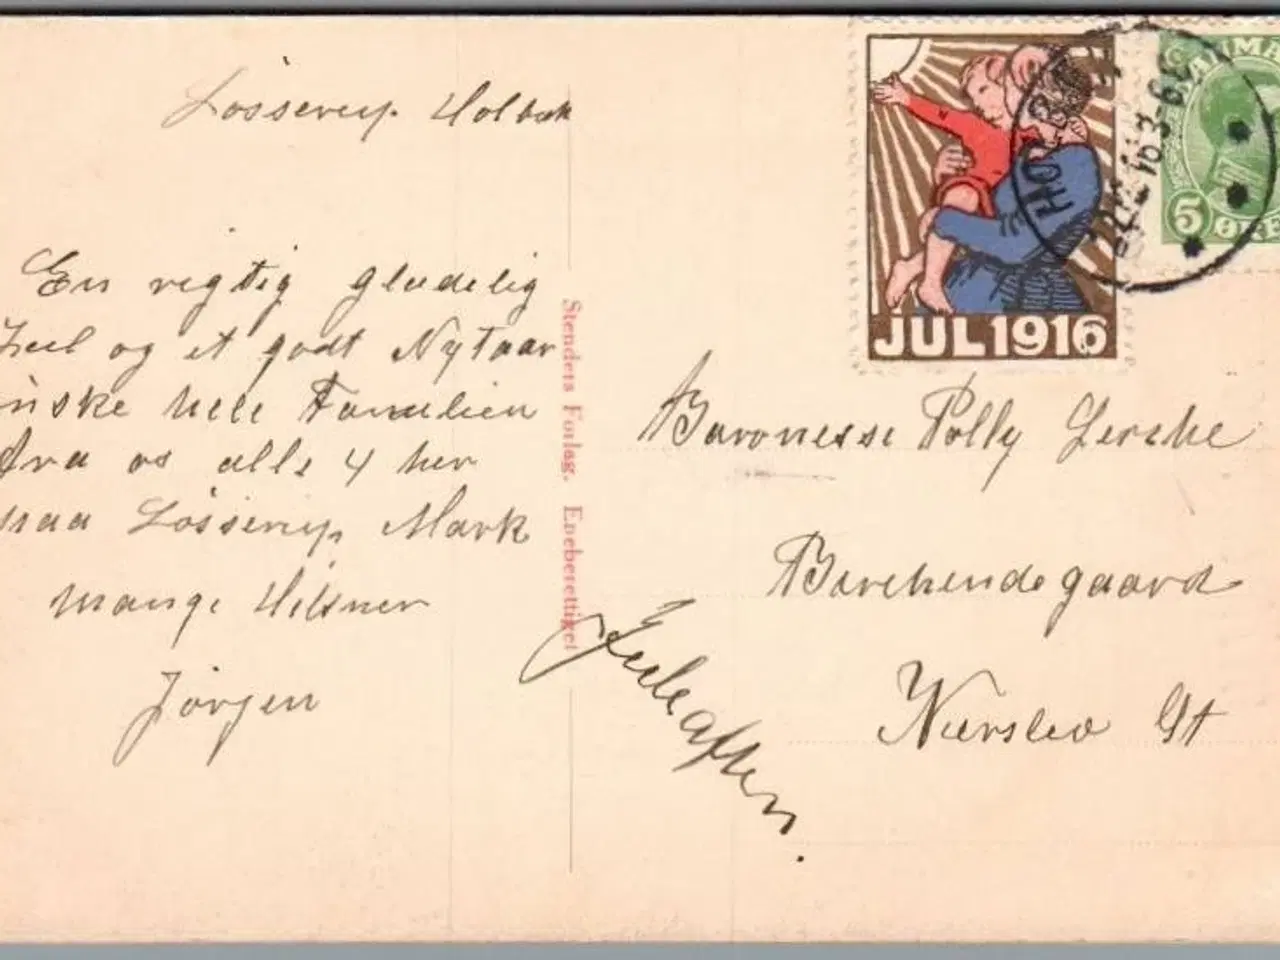 Løsserup Holbæk
En rigtig glædelig
Juul og et godt Nytaar
ønske hele Familien
fra os alle 4 her
paa Løsserup Mark
mange Hilsner
Jørgen
Stenders Forlag. Eneberettiget
JUL 1916
5
ØRE
Baronesse Polly Lerche
Birkendegaard
Værslev St
Juleaften.